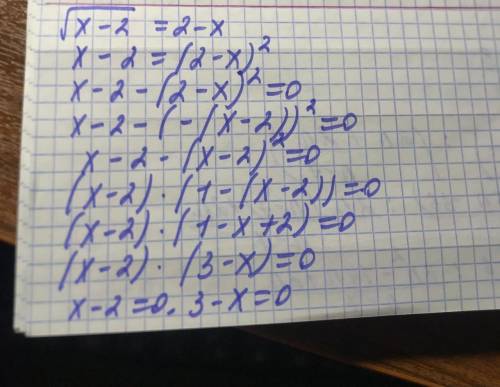 √(x-2) = 2-x
x-2 = (2-x)²
x-2-(2-x)² = 0
x-2-(-(x-2))² = 0
x-2-(x-2)² = 0
(x-2)·(1-(x-2)) = 0
(x-2)·(1-x+2) = 0
(x-2)·(3-x) = 0
x-2=0. 3-x=0